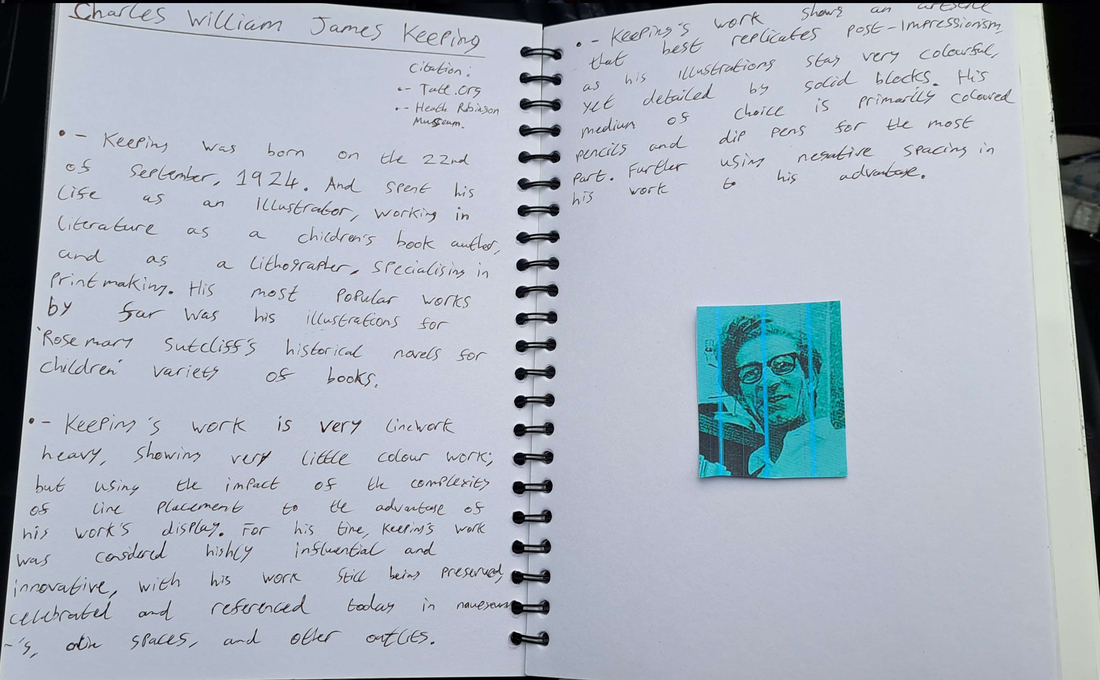 Charles William James Keeping
Citation:
•- Tate.org
•- Heath Robinson
Museum.
•- Keeping was born on the 22nd
of September, 1924. And spent his
life as an Illustrator, working in
literature as a children's book author,
and as a lithographer, specialising in
printmaking. His most popular works
by far was his illustrations for
'Rosemary Sutcliff's historical novels for
children' variety of books.
•- Keeping's work is very linework
heavy, showing very little colour work;
but using the impact of the complexity
of line placement to the advantage of
his work's display. For his time, Keeping's work
was considered highly influential and
innovative, with his work still being preserved,
celebrated and referenced today in museum
-'s, spaces, and other outlits.
•- Keeping's work shows an artstyle
that best replicates post-Impressionism,
as his illustrations stay very colourful,
yet detailed by solid blocks. His
medium of choice is primarily coloured
pencils and dip pens for the most
part. Further using negative spacing in
his work to his advantage.